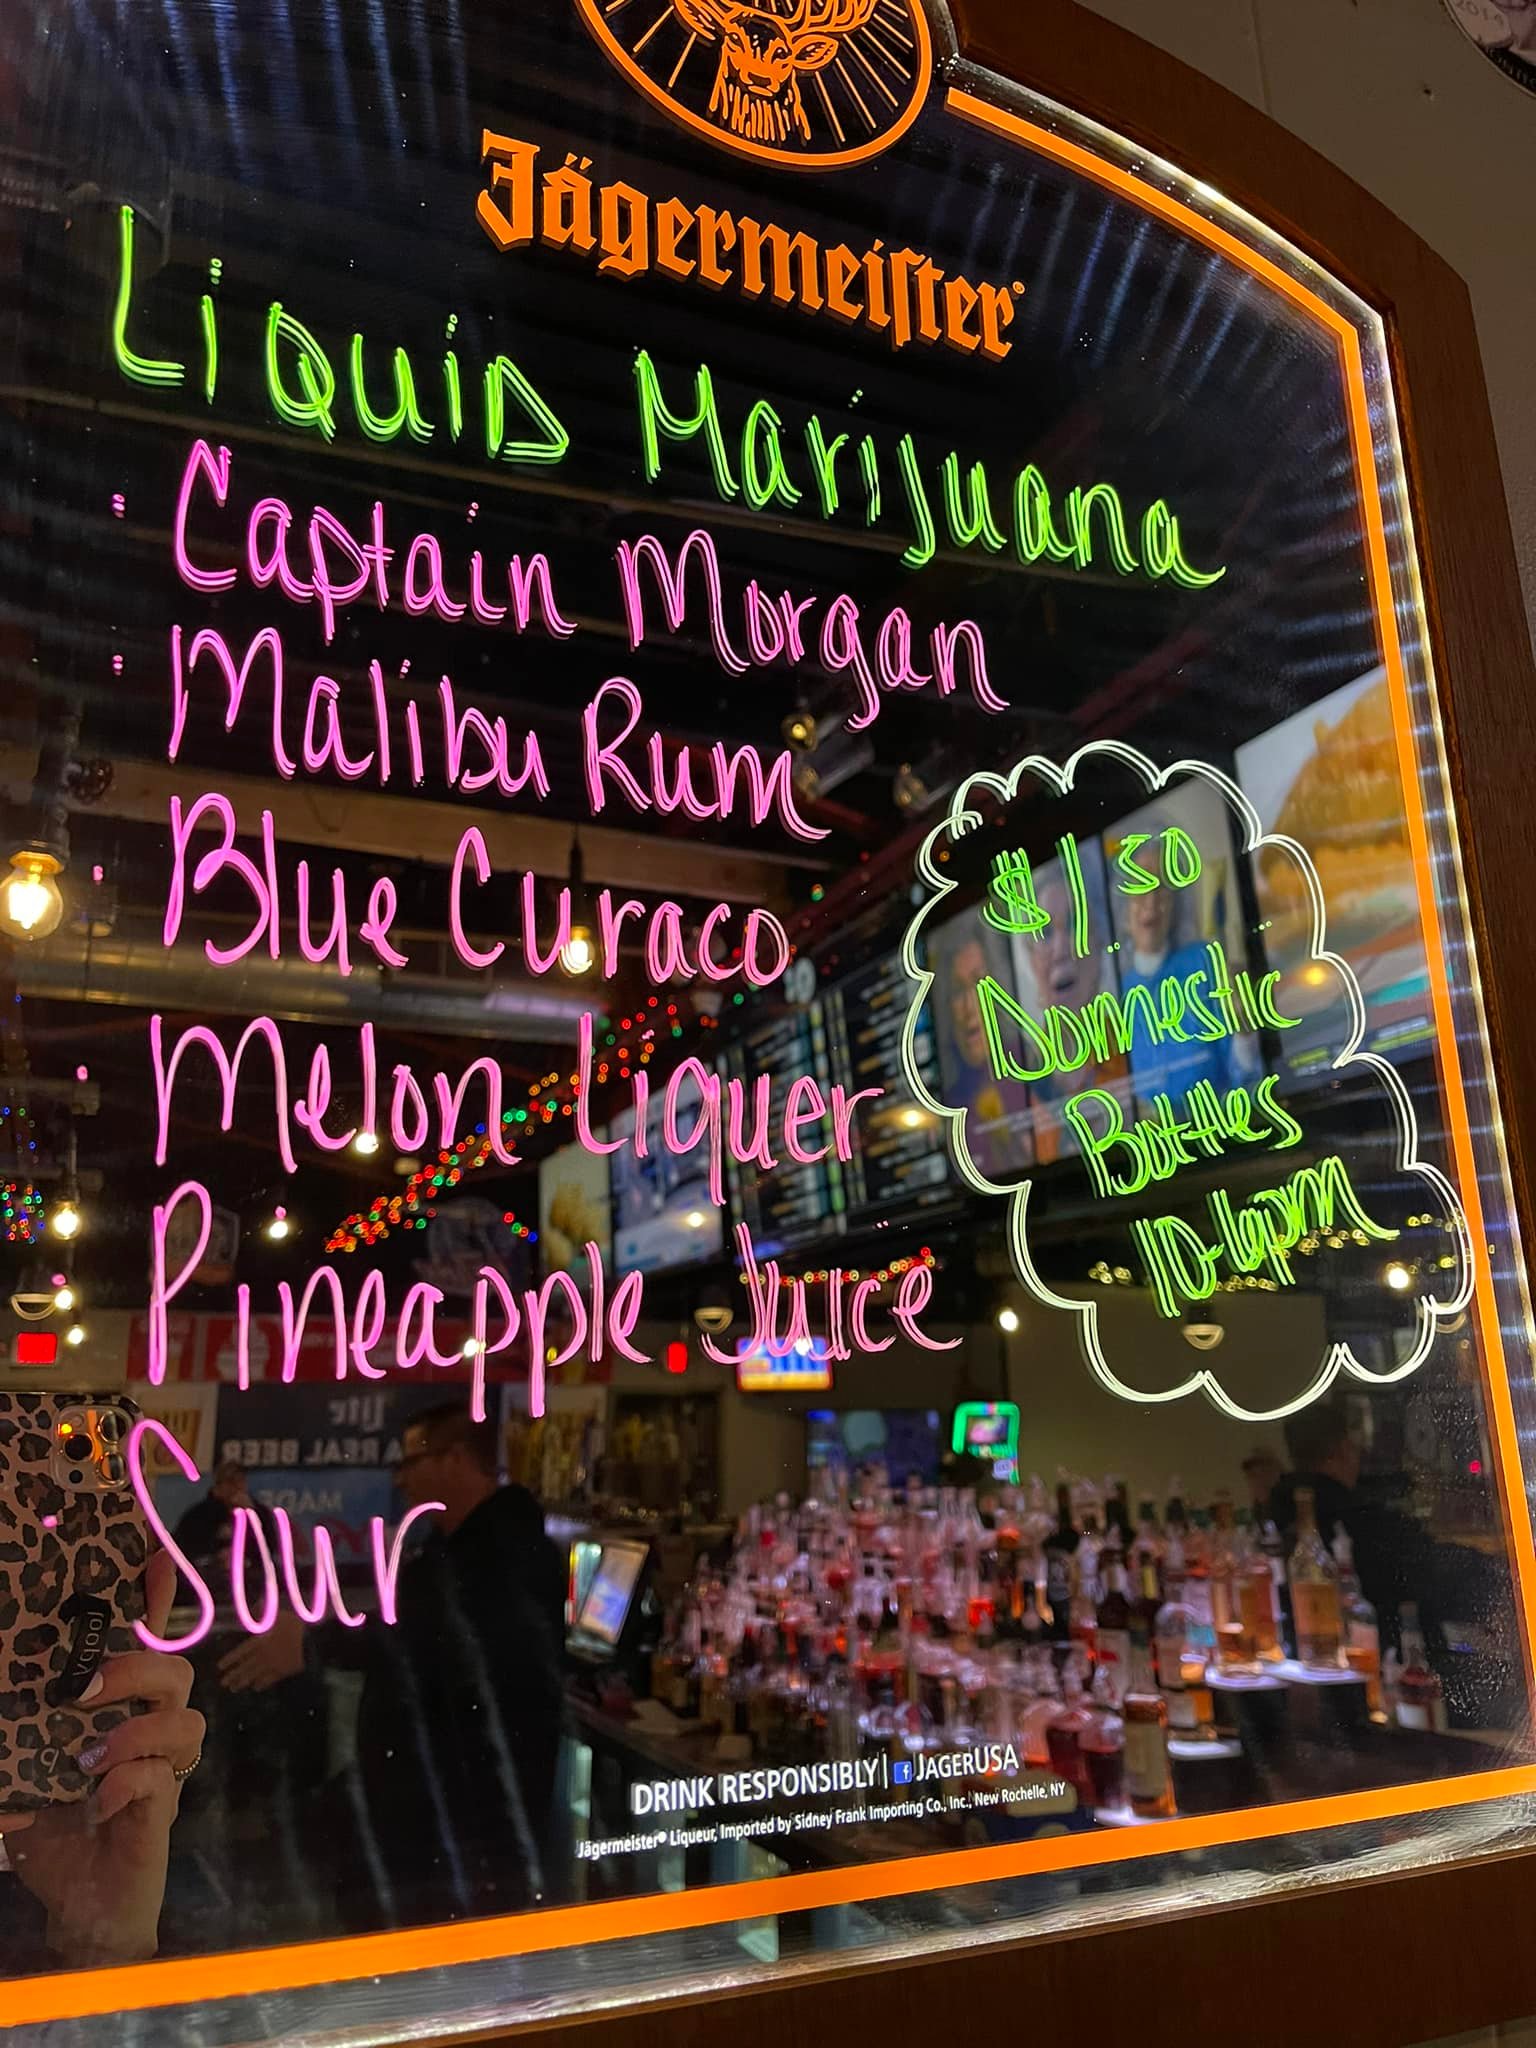 Jägermeister
Liquid Marijuana
Captain Morgan
Malibu Rum
Blue Curaco
Melon Liquer
Pineapple Juice
Sour
$1.50
Domestic
Bottles
10-6pm
Lite
A REAL BEER
MADE
loopy
DRINK RESPONSIBLY| f JAGERUSA
Jägermeister® Liqueur, Imported by Sidney Frank Importing Co., Inc., New Rochelle, NY
2014